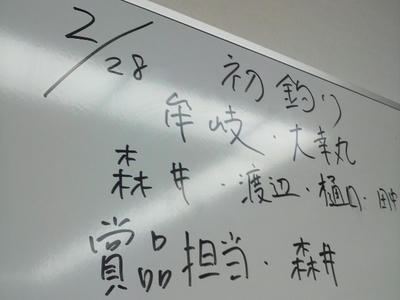 2/28 初釣り
牟岐・大幸丸
森井・渡辺・樋口・田中
賞品担当・森井